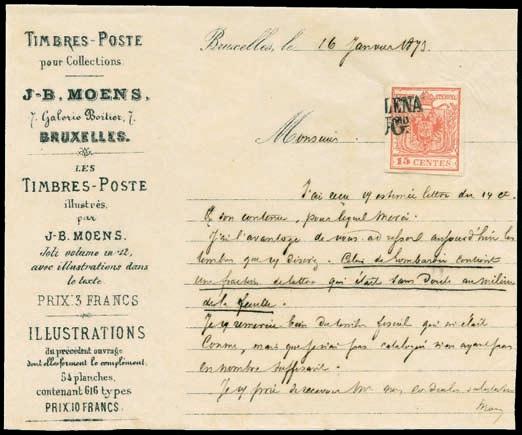 TIMBRES-POSTE
pour Collections.
J-B. MOENS,
7. Galerie Bortier, 7.
BRUXELLES.
LES
TIMBRES-POSTE
illustrés,
par
J-B. MOENS.
Joli volume in-12,
avec illustrations dans
le texte
PRIX: 3 FRANCS
ILLUSTRATIONS
du précédent ouvrage
dont elles forment le complément.
54 planches,
contenant 616 types
PRIX, 10 FRANCS.
Bruxelles, le 16 Janvier 1873.
LENA
GO
15 CENTES
Monsieur
J'ai reçu estimée lettre du 14 ct.
& son contenu, pour lequel merci.
J'ai l'avantage de vous adresser aujourd'hui les
timbres que désirez. Celui de Lombardie contient
une fraction de lettre qui était sans doute au milieu
de la feuille.
Je remercie bien du timbre fiscal qui m'était
connu, mais que je n'ai pas catalogué n'en ayant pas
en nombre suffisant.
Je prie de recevoir Mr mes cordiales salutations